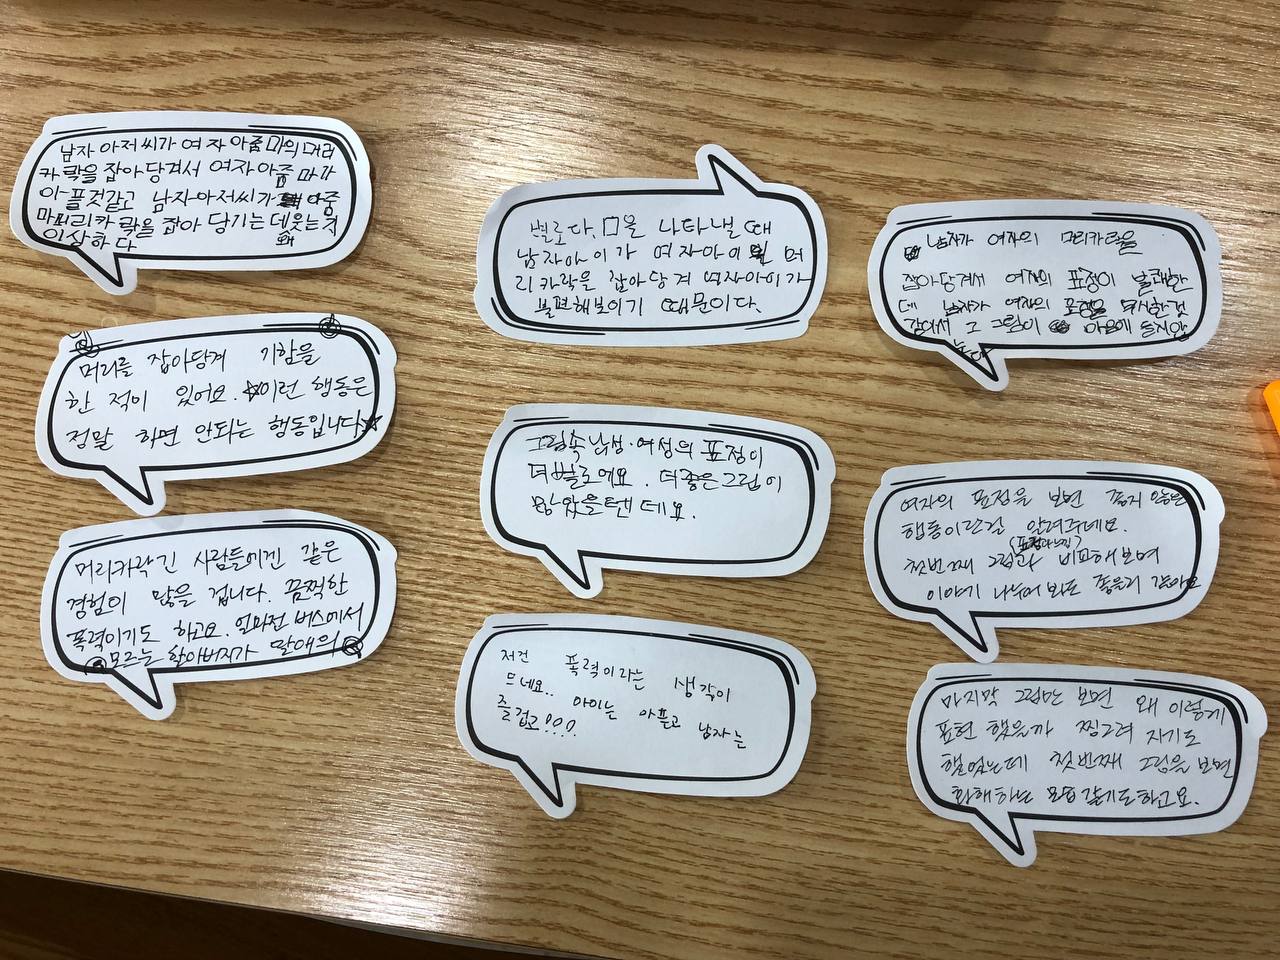 남자 아저씨가 여자 아줌마의 머리
카락을 잡아당겨서 여자아줌마가
아플것같고 남자아저씨가 아줌
마머리카락을 잡아 당기는데 웃는
왜
이상하다
머리를 잡아당겨 기함을
한 적이 있어요. ☆이런 행동은
정말 하면 안되는 행동입니다☆
머리카락 긴 사람들에겐 같은
경험이 많을 겁니다. 끔찍한
폭력이기도 하고요. 얼마전 버스에서
모르는 할아버지가 딸애의
별로다. □을 나타낼 때
남자아이가 여자아이의 머
리카락을 잡아당겨 여자아이가
불편해보이기 때문이다.
그림속 남성·여성의 표정이
더 별로에요. 더 좋은 그림이
많았을텐데요.
저건 폭력이라는 생각이
드네요.. 아이는 아프고 남자는
즐겁고!?!?
남자가 여자의 머리카락을
잡아당겨서 여자의 표정이 불쾌한
데 남자가 여자의 표정을 무시한것
같애서 그 그림이 마음에 들지않
는다
여자의 표정을 보면 좋지 않은
행동이란걸 알려주네요.
첫번째 그림과 비교해보며
이야기 나누어 봐도 좋을거 같아요
마지막 그림만 보면 왜 이렇게
표현 했을까 찜그려 지기도
했었는데 첫번째 그림을 보면
화해하는 모습 같기도하고요.